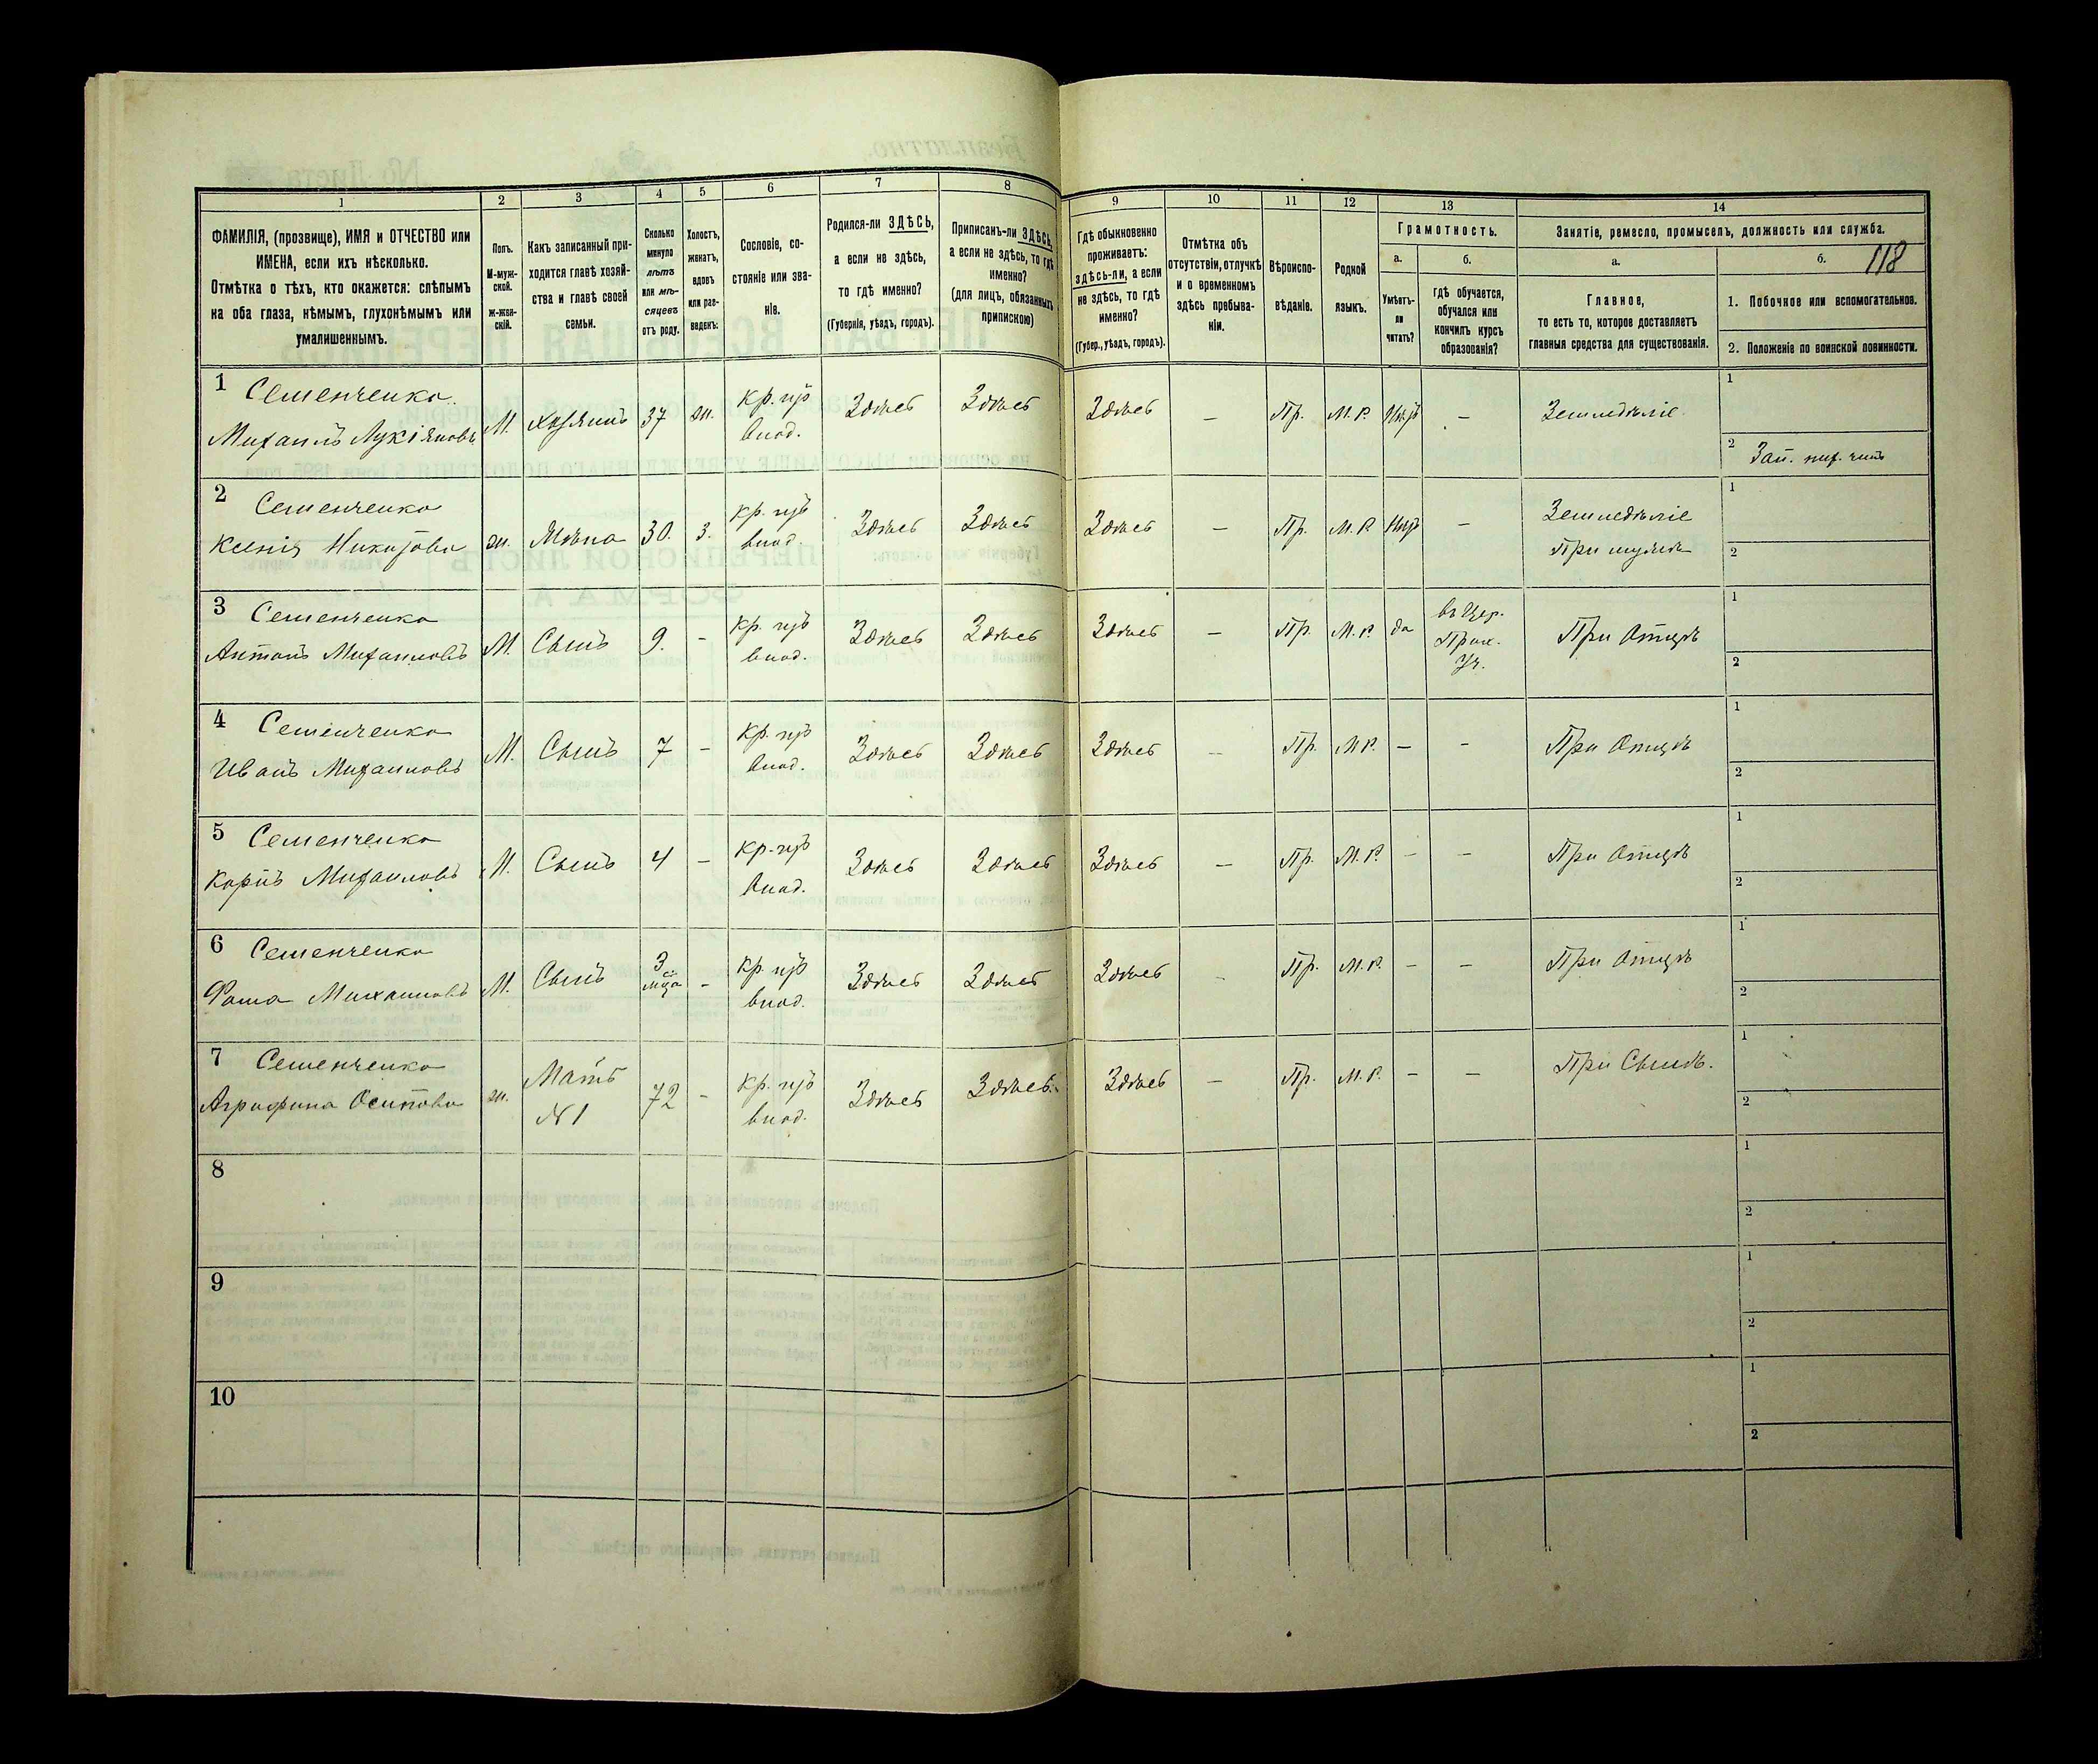 1
2
3
4
5
6
7
8
9
10
11
12
13
14
ФАМИЛІЯ, (прозвище), ИМЯ и ОТЧЕСТВО или
ИМЕНА, если ихъ нѣсколько.
Отмѣтка о тѣхъ, кто окажется: слѣпымъ
на оба глаза, нѣмымъ, глухонѣмымъ или
умалишеннымъ.
Полъ.
М-муж-
ской.
ж-жен-
скій.
Какъ записанный при-
ходится главѣ хозяй-
ства и главѣ своей
семьи.
Сколько
минуло
лѣтъ
или мѣ-
сяцевъ
отъ роду.
Холостъ,
женатъ,
вдовъ
или раз-
веденъ.
Сословіе, со-
стояніе или зва-
ніе.
Родился-ли ЗДѢСЬ,
а если не здѣсь,
то гдѣ именно?
(Губернія, уѣздъ, городъ).
Приписанъ-ли ЗДѢСЬ,
а если не здѣсь, то гдѣ
именно?
(для лицъ, обязанныхъ
припискою)
Гдѣ обыкновенно
проживаетъ:
здѣсь-ли, а если
не здѣсь, то гдѣ
именно?
(Губер., уѣздъ, городъ).
Отмѣтка объ
отсутствіи, отлучкѣ
и о временномъ
здѣсь пребыва-
ніи.
Вѣроиспо-
вѣданіе.
Родной
языкъ.
Грамотность.
а.
Умѣетъ-
ли
читать?
б.
гдѣ обучается,
обучался или
кончилъ курсъ
образованія?
Занятіе, ремесло, промыселъ, должность или служба.
а.
Главное,
то есть то, которое доставляетъ
главныя средства для существованія.
б.
118
1. Побочное или вспомогательное.
2. Положеніе по воинской повинности.
1 Семенченко
Михаилъ Лукіяновъ М. Хозяинъ 37 ж. Кр. изъ влад. Здѣсь Здѣсь Здѣсь – Пр. М.Р. Нѣтъ – Земледѣліе
1
2 Зап. ниж. чинъ
2 Семенченко
Ксенія ж. Жена 30. З. Кр. изъ влад. Здѣсь Здѣсь Здѣсь – Пр. М.Р. Нѣтъ – Земледѣліе
При мужѣ
1
2
3 Семенченко
Антонъ Михаиловъ М. Сынъ 9. – Кр. изъ влад. Здѣсь Здѣсь Здѣсь – Пр. М.Р. да въ Цер. Прих. Уч. При Отцѣ
1
2
4 Семенченко
Иванъ Михаиловъ М. Сынъ 7 – Кр. изъ влад. Здѣсь Здѣсь Здѣсь – Пр. М.Р. – – При Отцѣ
1
2
5 Семенченко
Карпъ Михаиловъ М. Сынъ 4 – Кр. изъ влад. Здѣсь Здѣсь Здѣсь – Пр. М.Р. – – При Отцѣ
1
2
6 Семенченко
Фома Михаиловъ М. Сынъ 3 мца – Кр. изъ влад. Здѣсь Здѣсь Здѣсь – Пр. М.Р. – – При Отцѣ
1
2
7 Семенченко
Агрифина Осипова ж. Мать №1 72 – Кр. изъ влад. Здѣсь Здѣсь Здѣсь – Пр. М.Р. – – При Сынѣ.
1
2
8
1
2
9
1
2
10
1
2